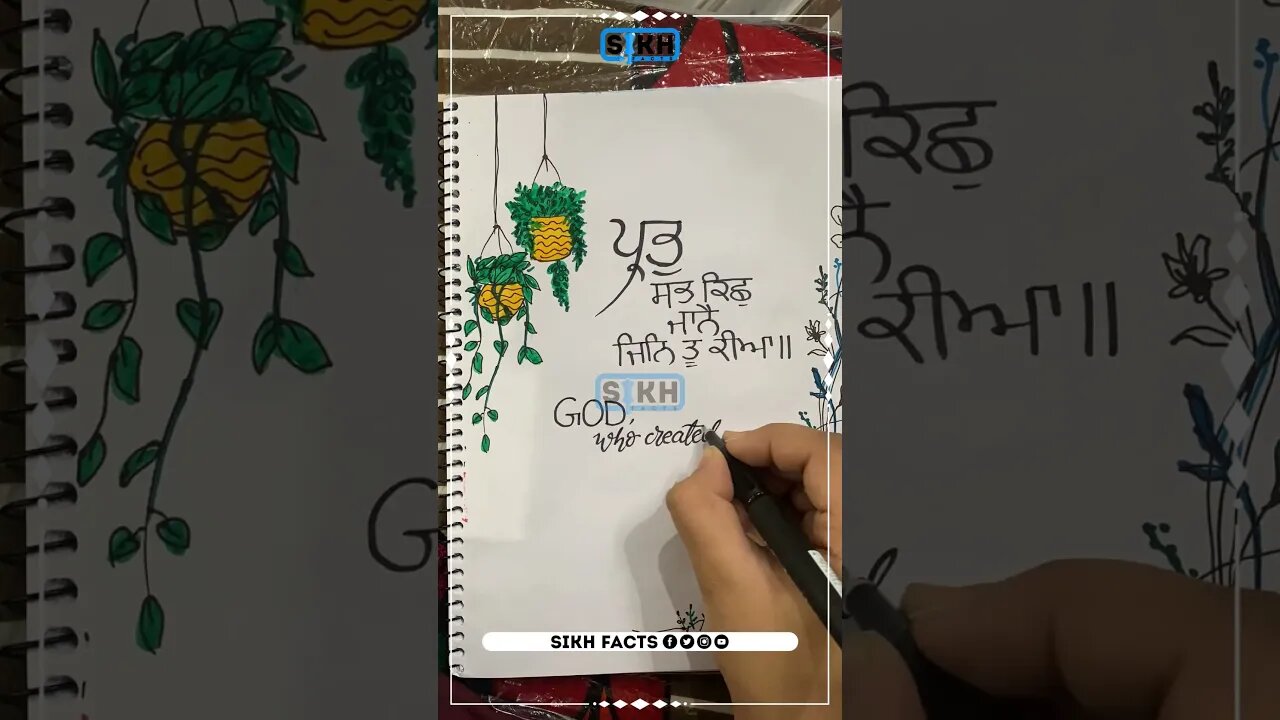 SIKH
FACTS
ਪ੍ਰਭੁ
ਸਭ ਕਿਛੁ
ਜਾਨੈ
ਜਿਨਿ ਤੂ ਕੀਆ॥
SIKH
FACTS
GOD,
who created
SIKH FACTS